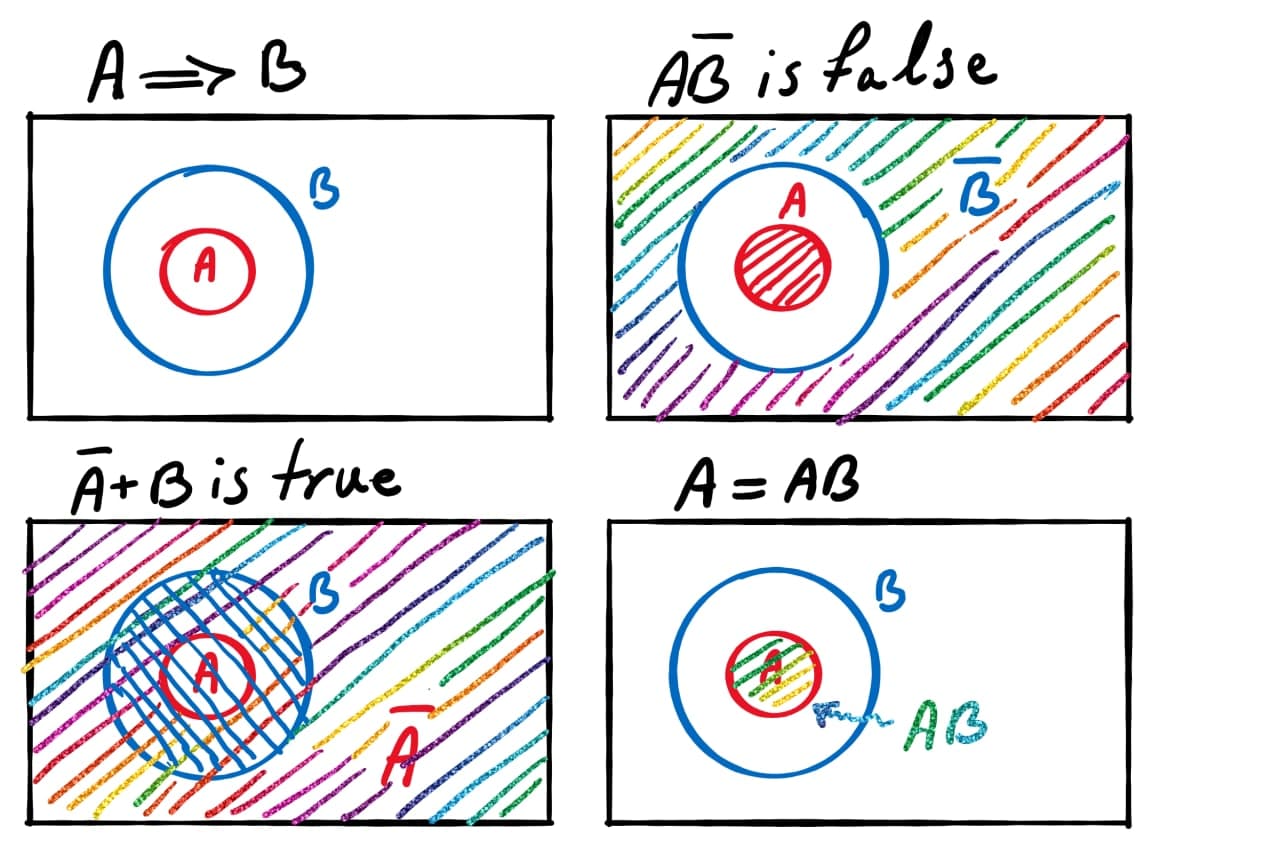 A ⟹ B
B
A
AB̅ is false
A
B̅
A̅+B is true
B
A
A̅
A = AB
B
A
AB